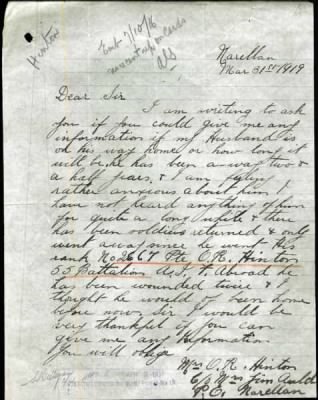 Hinton
Emb 7/10/16
Narellan
Mar 31st 1919
Dear Sir
I am writing to ask
you if you could give me any
information if my Husband is
on his way home or how long it
will be, he has been away two &
a half years, & I am feeling
rather anxious about him I
have not heard anything of him
for quite a long while & there
has been soldiers returned & only
went away since he went his
rank No 2667 Pte O.R. Hinton
55 Battalion A.I.F. Abroad he
has been wounded twice & I
thought he would of been home
before now, Sir I would be
very thankful if you can
give me any Information
You will oblige
Mrs O.R. Hinton
C/o Mrs Jim Auld
P.O. Narellan